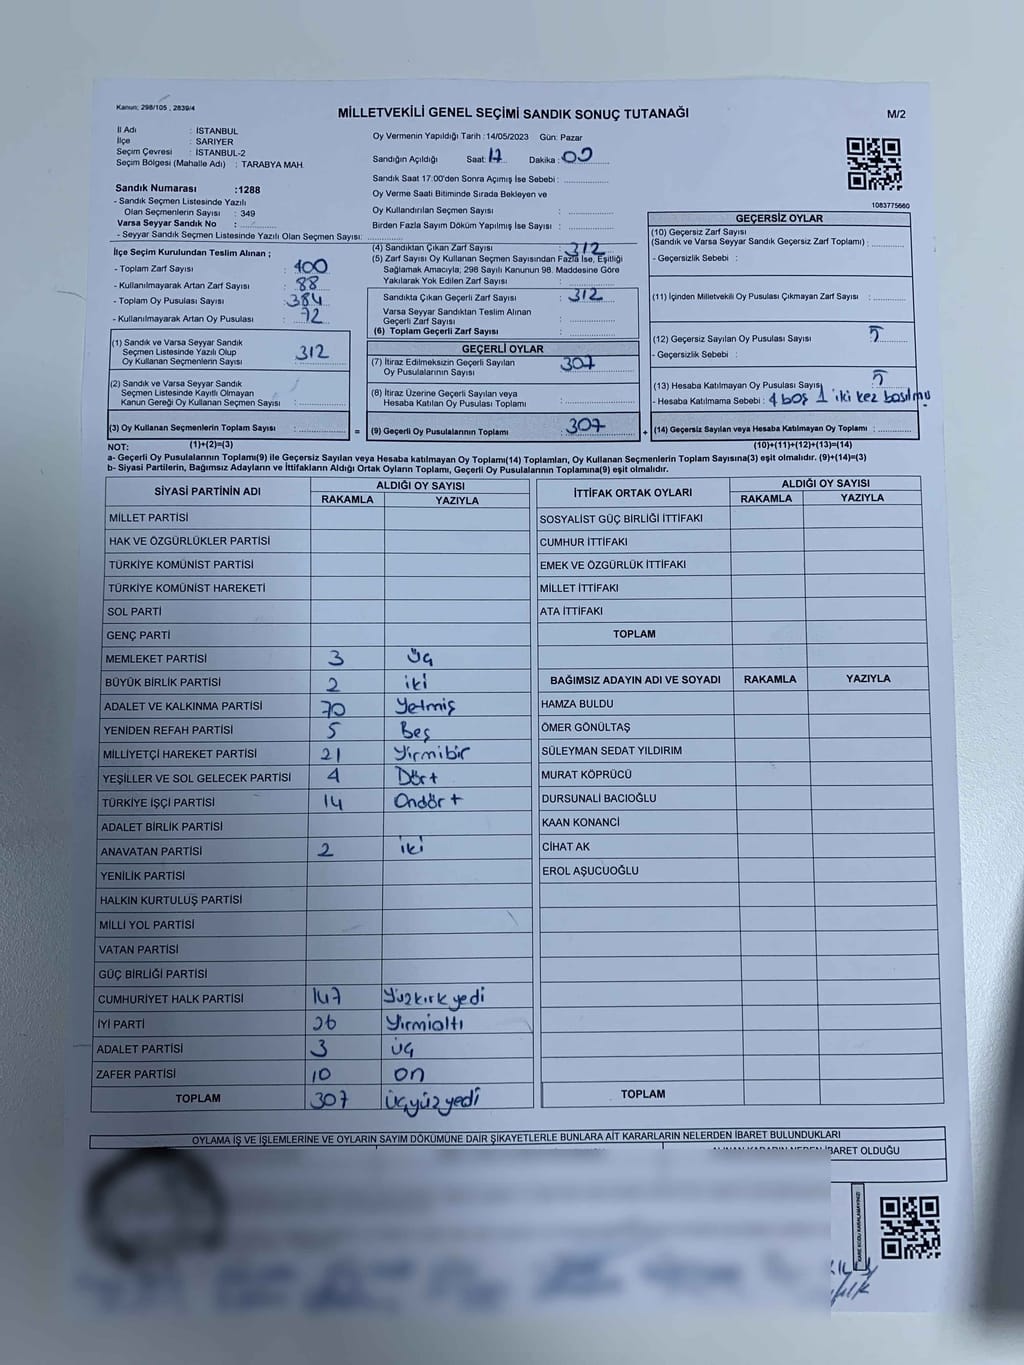 Kanun: 298/105 , 2839/4
MİLLETVEKİLİ GENEL SEÇİMİ SANDIK SONUÇ TUTANAĞI
M/2
İl Adı : İSTANBUL
İlçe : SARIYER
Seçim Çevresi : İSTANBUL-2
Seçim Bölgesi (Mahalle Adı) : TARABYA MAH.
Sandık Numarası :1288
- Sandık Seçmen Listesinde Yazılı
Olan Seçmenlerin Sayısı : 349
Varsa Seyyar Sandık No :
- Seyyar Sandık Seçmen Listesinde Yazılı Olan Seçmen Sayısı:
İlçe Seçim Kurulundan Teslim Alınan ;
- Toplam Zarf Sayısı : 400
- Kullanılmayarak Artan Zarf Sayısı : 88
- Toplam Oy Pusulası Sayısı : 384
- Kullanılmayarak Artan Oy Pusulası : 72
(1) Sandık ve Varsa Seyyar Sandık
Seçmen Listesinde Yazılı Olup
Oy Kullanan Seçmenlerin Sayısı : 312
(2) Sandık ve Varsa Seyyar Sandık
Seçmen Listesinde Kayıtlı Olmayan
Kanun Gereği Oy Kullanan Seçmen Sayısı :
(3) Oy Kullanan Seçmenlerin Toplam Sayısı :
Oy Vermenin Yapıldığı Tarih :14/05/2023 Gün: Pazar
Sandığın Açıldığı Saat: 17 Dakika : 00
Sandık Saat 17:00'den Sonra Açımış İse Sebebi :
Oy Verme Saati Bitiminde Sırada Bekleyen ve
Oy Kullandırılan Seçmen Sayısı :
Birden Fazla Sayım Döküm Yapılmış İse Sayısı :
(4) Sandıktan Çıkan Zarf Sayısı : 312
(5) Zarf Sayısı Oy Kullanan Seçmen Sayısından Fazla İse, Eşitliği
Sağlamak Amacıyla; 298 Sayılı Kanunun 98. Maddesine Göre
Yakılarak Yok Edilen Zarf Sayısı :
Sandıkta Çıkan Geçerli Zarf Sayısı : 312
Varsa Seyyar Sandıktan Teslim Alınan
Geçerli Zarf Sayısı :
(6) Toplam Geçerli Zarf Sayısı :
GEÇERLİ OYLAR
(7) İtiraz Edilmeksizin Geçerli Sayılan
Oy Pusulalarının Sayısı : 307
(8) İtiraz Üzerine Geçerli Sayılan veya
Hesaba Katılan Oy Pusulası Toplamı :
= (9) Geçerli Oy Pusulalarının Toplamı : 307 +
1083775660
GEÇERSİZ OYLAR
(10) Geçersiz Zarf Sayısı
(Sandık ve Varsa Seyyar Sandık Geçersiz Zarf Toplamı) :
- Geçersizlik Sebebi :
(11) İçinden Milletvekili Oy Pusulası Çıkmayan Zarf Sayısı :
(12) Geçersiz Sayılan Oy Pusulası Sayısı : 5
- Geçersizlik Sebebi :
(13) Hesaba Katılmayan Oy Pusulası Sayısı : 5
- Hesaba Katılmama Sebebi : 4 boş 1 iki kez basılmış
(14) Geçersiz Sayılan veya Hesaba Katılmayan Oy Toplamı :
NOT: (1)+(2)=(3) (10)+(11)+(12)+(13)=(14)
a- Geçerli Oy Pusulalarının Toplamı(9) ile Geçersiz Sayılan veya Hesaba katılmayan Oy Toplamı(14) Toplamları, Oy Kullanan Seçmenlerin Toplam Sayısına(3) eşit olmalıdır. (9)+(14)=(3)
b- Siyasi Partilerin, Bağımsız Adayların ve İttifakların Aldığı Ortak Oyların Toplamı, Geçerli Oy Pusulalarının Toplamına(9) eşit olmalıdır.
SİYASİ PARTİNİN ADI ALDIĞI OY SAYISI
RAKAMLA YAZIYLA
MİLLET PARTİSİ
HAK VE ÖZGÜRLÜKLER PARTİSİ
TÜRKİYE KOMÜNİST PARTİSİ
TÜRKİYE KOMÜNİST HAREKETİ
SOL PARTİ
GENÇ PARTİ
MEMLEKET PARTİSİ 3 Üç
BÜYÜK BİRLİK PARTİSİ 2 iki
ADALET VE KALKINMA PARTİSİ 70 Yetmiş
YENİDEN REFAH PARTİSİ 5 Beş
MİLLİYETÇİ HAREKET PARTİSİ 21 Yirmibir
YEŞİLLER VE SOL GELECEK PARTİSİ 4 Dört
TÜRKİYE İŞÇİ PARTİSİ 14 Ondört
ADALET BİRLİK PARTİSİ
ANAVATAN PARTİSİ 2 iki
YENİLİK PARTİSİ
HALKIN KURTULUŞ PARTİSİ
MİLLİ YOL PARTİSİ
VATAN PARTİSİ
GÜÇ BİRLİĞİ PARTİSİ
CUMHURİYET HALK PARTİSİ 147 Yüzkırkyedi
İYİ PARTİ 26 Yirmialtı
ADALET PARTİSİ 3 üç
ZAFER PARTİSİ 10 on
TOPLAM 307 üçyüzyedi
İTTİFAK ORTAK OYLARI ALDIĞI OY SAYISI
RAKAMLA YAZIYLA
SOSYALİST GÜÇ BİRLİĞİ İTTİFAKI
CUMHUR İTTİFAKI
EMEK VE ÖZGÜRLÜK İTTİFAKI
MİLLET İTTİFAKI
ATA İTTİFAKI
TOPLAM
BAĞIMSIZ ADAYIN ADI VE SOYADI RAKAMLA YAZIYLA
HAMZA BULDU
ÖMER GÖNÜLTAŞ
SÜLEYMAN SEDAT YILDIRIM
MURAT KÖPRÜCÜ
DURSUNALİ BACIOĞLU
KAAN KONANCİ
CİHAT AK
EROL AŞUCUOĞLU
TOPLAM
OYLAMA İŞ VE İŞLEMLERİNE VE OYLARIN SAYIM DÖKÜMÜNE DAİR ŞİKAYETLERLE BUNLARA AİT KARARLARIN NELERDEN İBARET BULUNDUKLARI
ALINAN KARARIN NEDEN İBARET OLDUĞU
KARE KODU KARALAMAYINIZ!